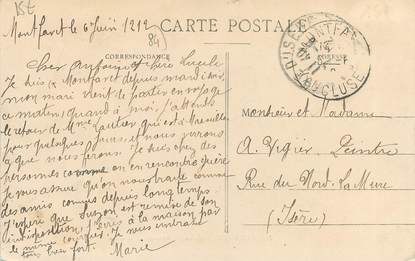 15E
Montfavet le 6 juin 1912
84
CARTE POSTALE
CORRESPONDANCE
Cher Antoine et chère Lucile
Je suis à Montfavet depuis mardi soir
mon mari vient de partir en voyage
ce matin, quand à moi, j'attends
le retour de Mme Lautier qui est à Marseille
pour quelques jours, et nous verrons
ce que nous ferons. Je suis chez des
personnes comme on en rencontre guère
je vous assure qu'on nous traite comme
des amis connus depuis longtemps
J'espère que Suzon est remise de son
indisposition, j'écris à la maison par
le même courrier. Je vous embrasse
tous bien fort. Marie
MONTFAVET
VAUCLUSE
Monsieur et Madame
A. Vigier, Peintre
Rue du Nord. La Mure
(Isère)